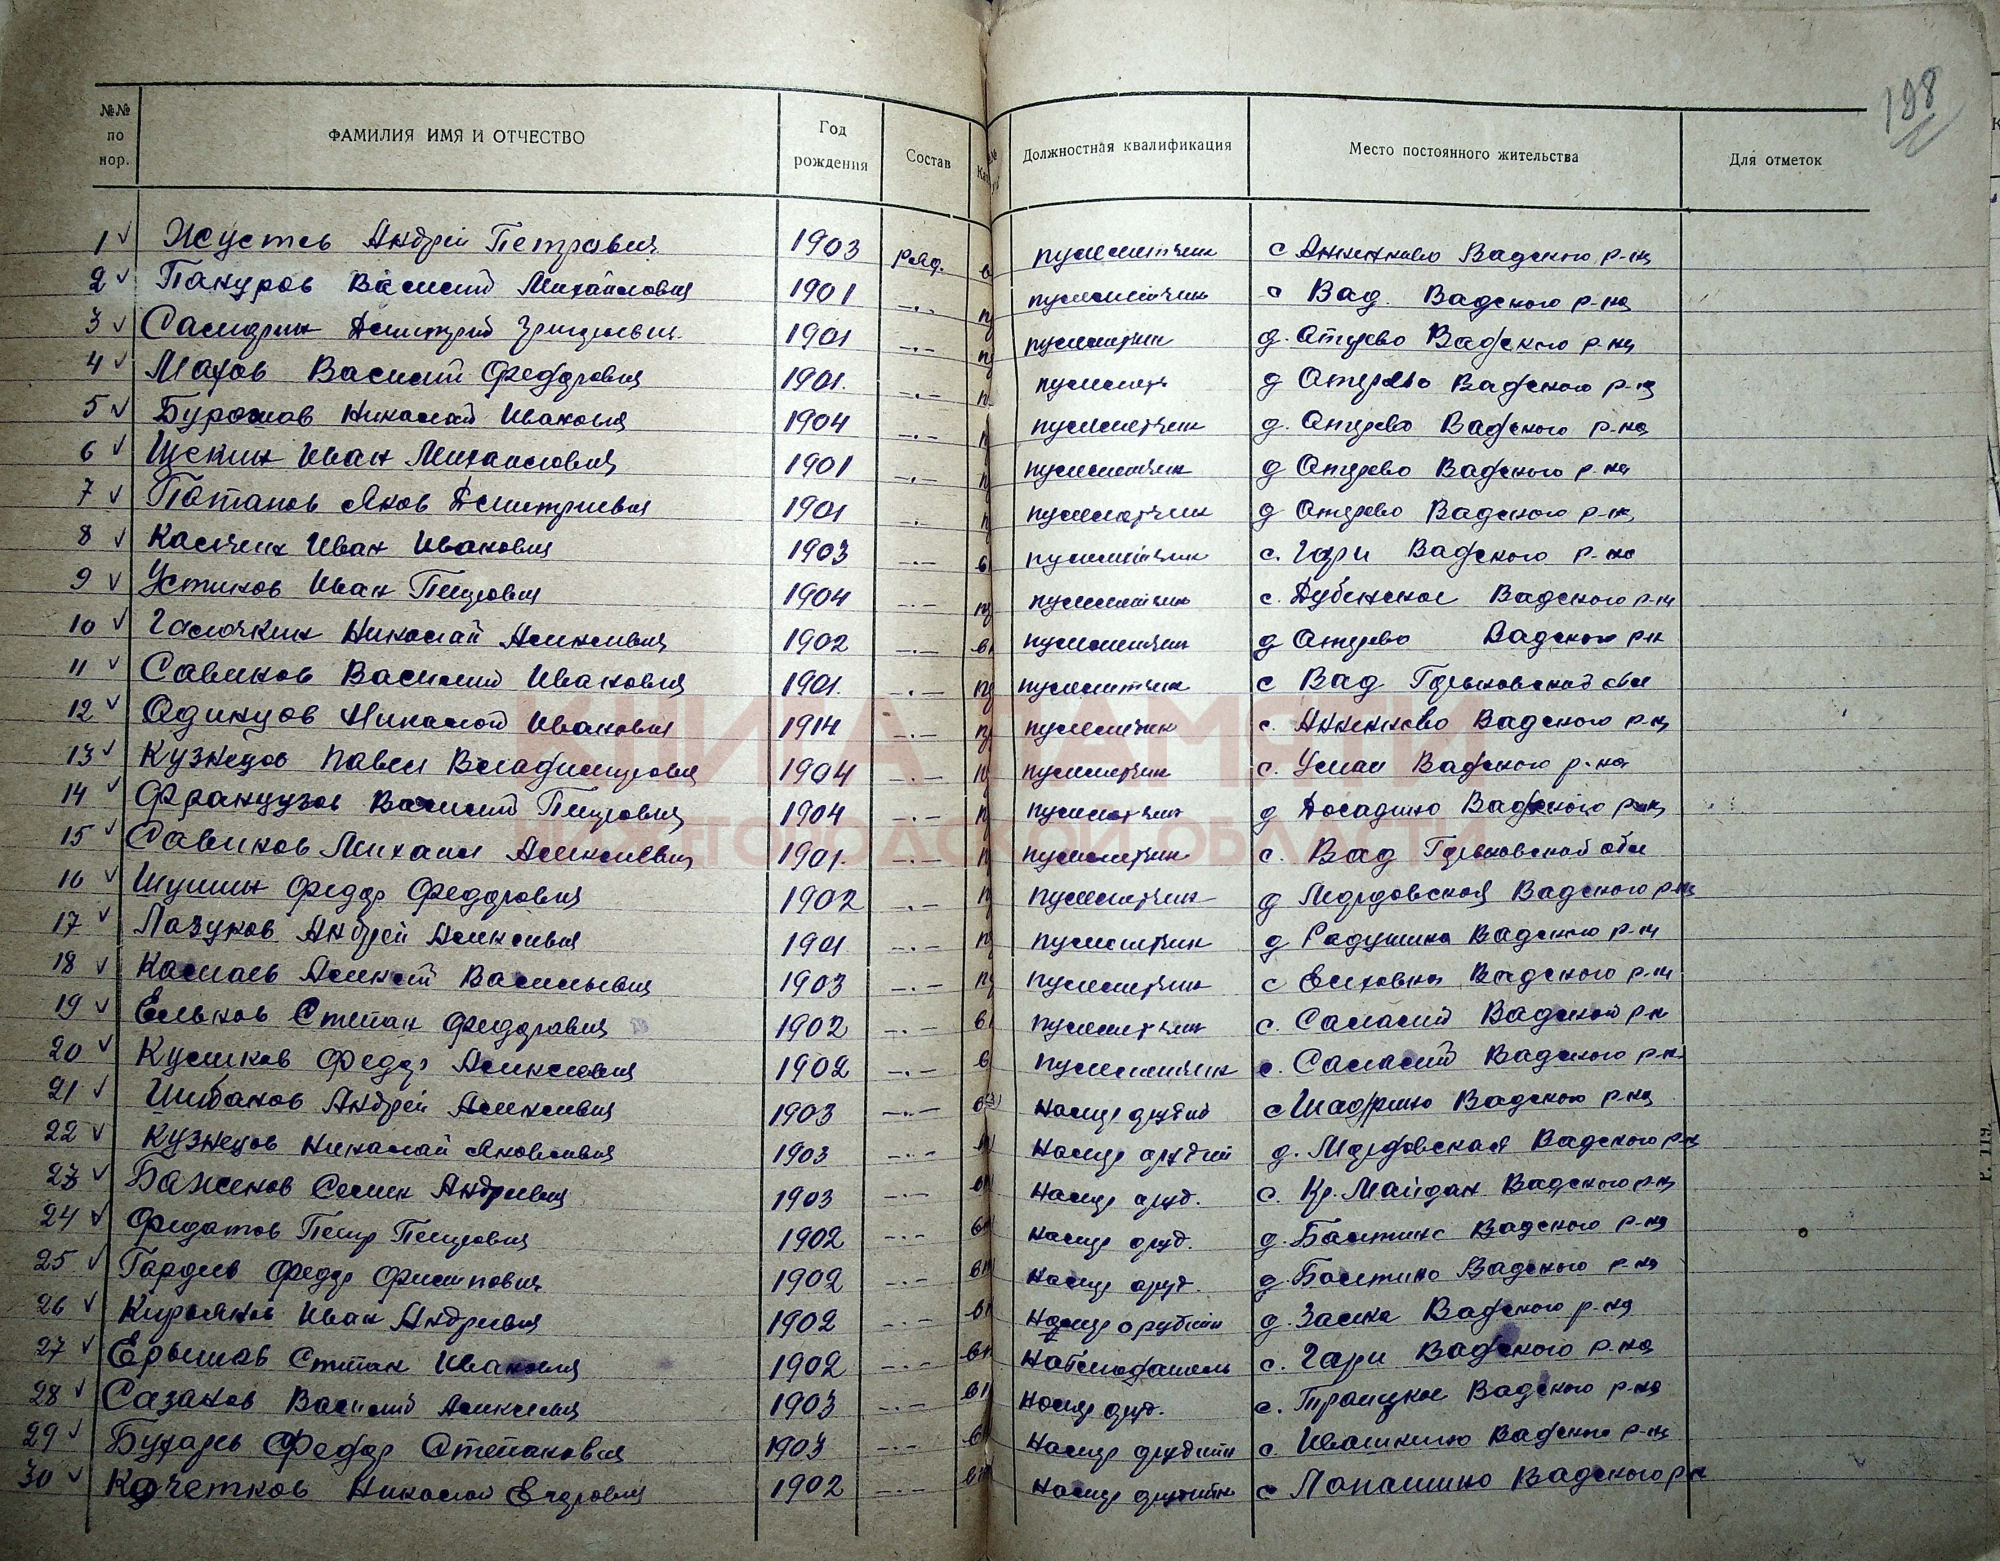 198
№№ по нор. ФАМИЛИЯ ИМЯ И ОТЧЕСТВО Год рождения Состав Должностная квалификация Место постоянного жительства Для отметок
1 Жустев Андрей Петрович 1903 ряд. пулеметчик с Анненково Вадского р-на
2 Пануров Василий Михайлович 1901 -"- пулеметчик с Вад. Вадского р-на
3 Дмитрий Григорьевич 1901 -"- пулеметчик д. Отуево Вадского р-на
4 Махов Василий Федорович 1901. -"- пулемет д Отуево Вадского р-на
5 Николай Иванович 1904 -"- пулеметчик д. Отуево Вадского р-на
6 Щекин Иван Михайлович 1901 -"- пулеметчик д Отуево Вадского р-на
7 Потапов Яков Дмитриевич 1901 пулеметчик д Отуево Вадского р-на
8 Иван Иванович 1903 -"- пулеметчик с. Гари Вадского р-на
9 Устинов Иван Петрович 1904 -"- пулеметчик с. Дубенское Вадского р-н
10 Галочкин Николай Алексеевич 1902 -"- пулеметчик д Отуево Вадского р-н
11 Савинов Василий Иванович 1901. -"- пулеметчик с Вад Горьковской обл
12 Одинцов Николай Иванович 1914 -"- пулеметчик с. Анненково Вадского р-на
13 Кузнецов Павел Владимирович 1904 -"- пулеметчик с. Вадского р-на
14 Французов Василий Петрович 1904 -"- пулеметчик д Досадино Вадского р-на
15 Савинов Михаил Алексеевич 1901. -"- пулеметчик с. Вад Горьковской обл
16 Федор Федорович 1902 -"- пулеметчик д Мордовская Вадского р-на
17 Лазуков Андрей Алексеевич 1901 -"- пулеметчик д Радушина Вадского р-н
18 Алексей Васильевич 1903 -"- пулеметчик с Елховка Вадского р-н
19 Ельков Степан Федорович 1902 -"- пулеметчик с. Салалей Вадской р-н
20 Куликов Федор Алексеевич 1902 -"- пулеметчик с. Салалей Вадского р-н
21 Шибанов Андрей Алексеевич 1903 -"- Номер орудий с Шадрино Вадского р-на
22 Кузнецов Николай Яковлевич 1903 -"- Номер орудий д. Мордовская Вадского р-н
23 Баженов Семен Андреевич 1903 -"- номер оруд. с. Кр. Майдан Вадского р-н
24 Федотов Петр Петрович 1902 -"- номер оруд. д. Вадского р-на
25 Гордеев Федор Филиппович 1902 -"- номер оруд. д. Болтино Вадского р-на
26 Кирьянов Иван Андреевич 1902 -"- номер орудий д. Вадского р-на
27 Ермолаев Степан Иванович 1902 -"- Наблюдатель с. Гари Вадского р-на
28 Сазанов Василий Алексеевич 1903 -"- номер оруд. с. Троицкое Вадского р-на
29 Бухарев Федор Степанович 1903 -"- номер орудий с. Ивашкино Вадского р-на
30 Кочетков Николай Егорович 1902 -"- номер с Лопатино Вадского р-н
КНИГА ПАМЯТИ
НИЖЕГОРОДСКОЙ ОБЛАСТИ